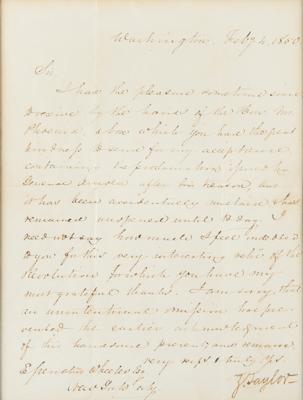 Washington. Feby 4, 1850
Sir,
I had the pleasure sometime since
to receive by the hands of the Hon Mr.
Phoenix, a box which you had the great
kindness to send for my acceptance
containing the proclamation issued by
General Arnold after his treason, but
it has been accidentally and has
remained unopened until to day. I
need not say how much I feel indebted
to you for this very interesting relic of the
Revolution for which you have my
most grateful thanks. I am sorry that
an unintentional omission has pre-
vented the earlier acknowledgment
of this handsome present, and remain
very resp & truly yrs.
New York City
Z. Taylor